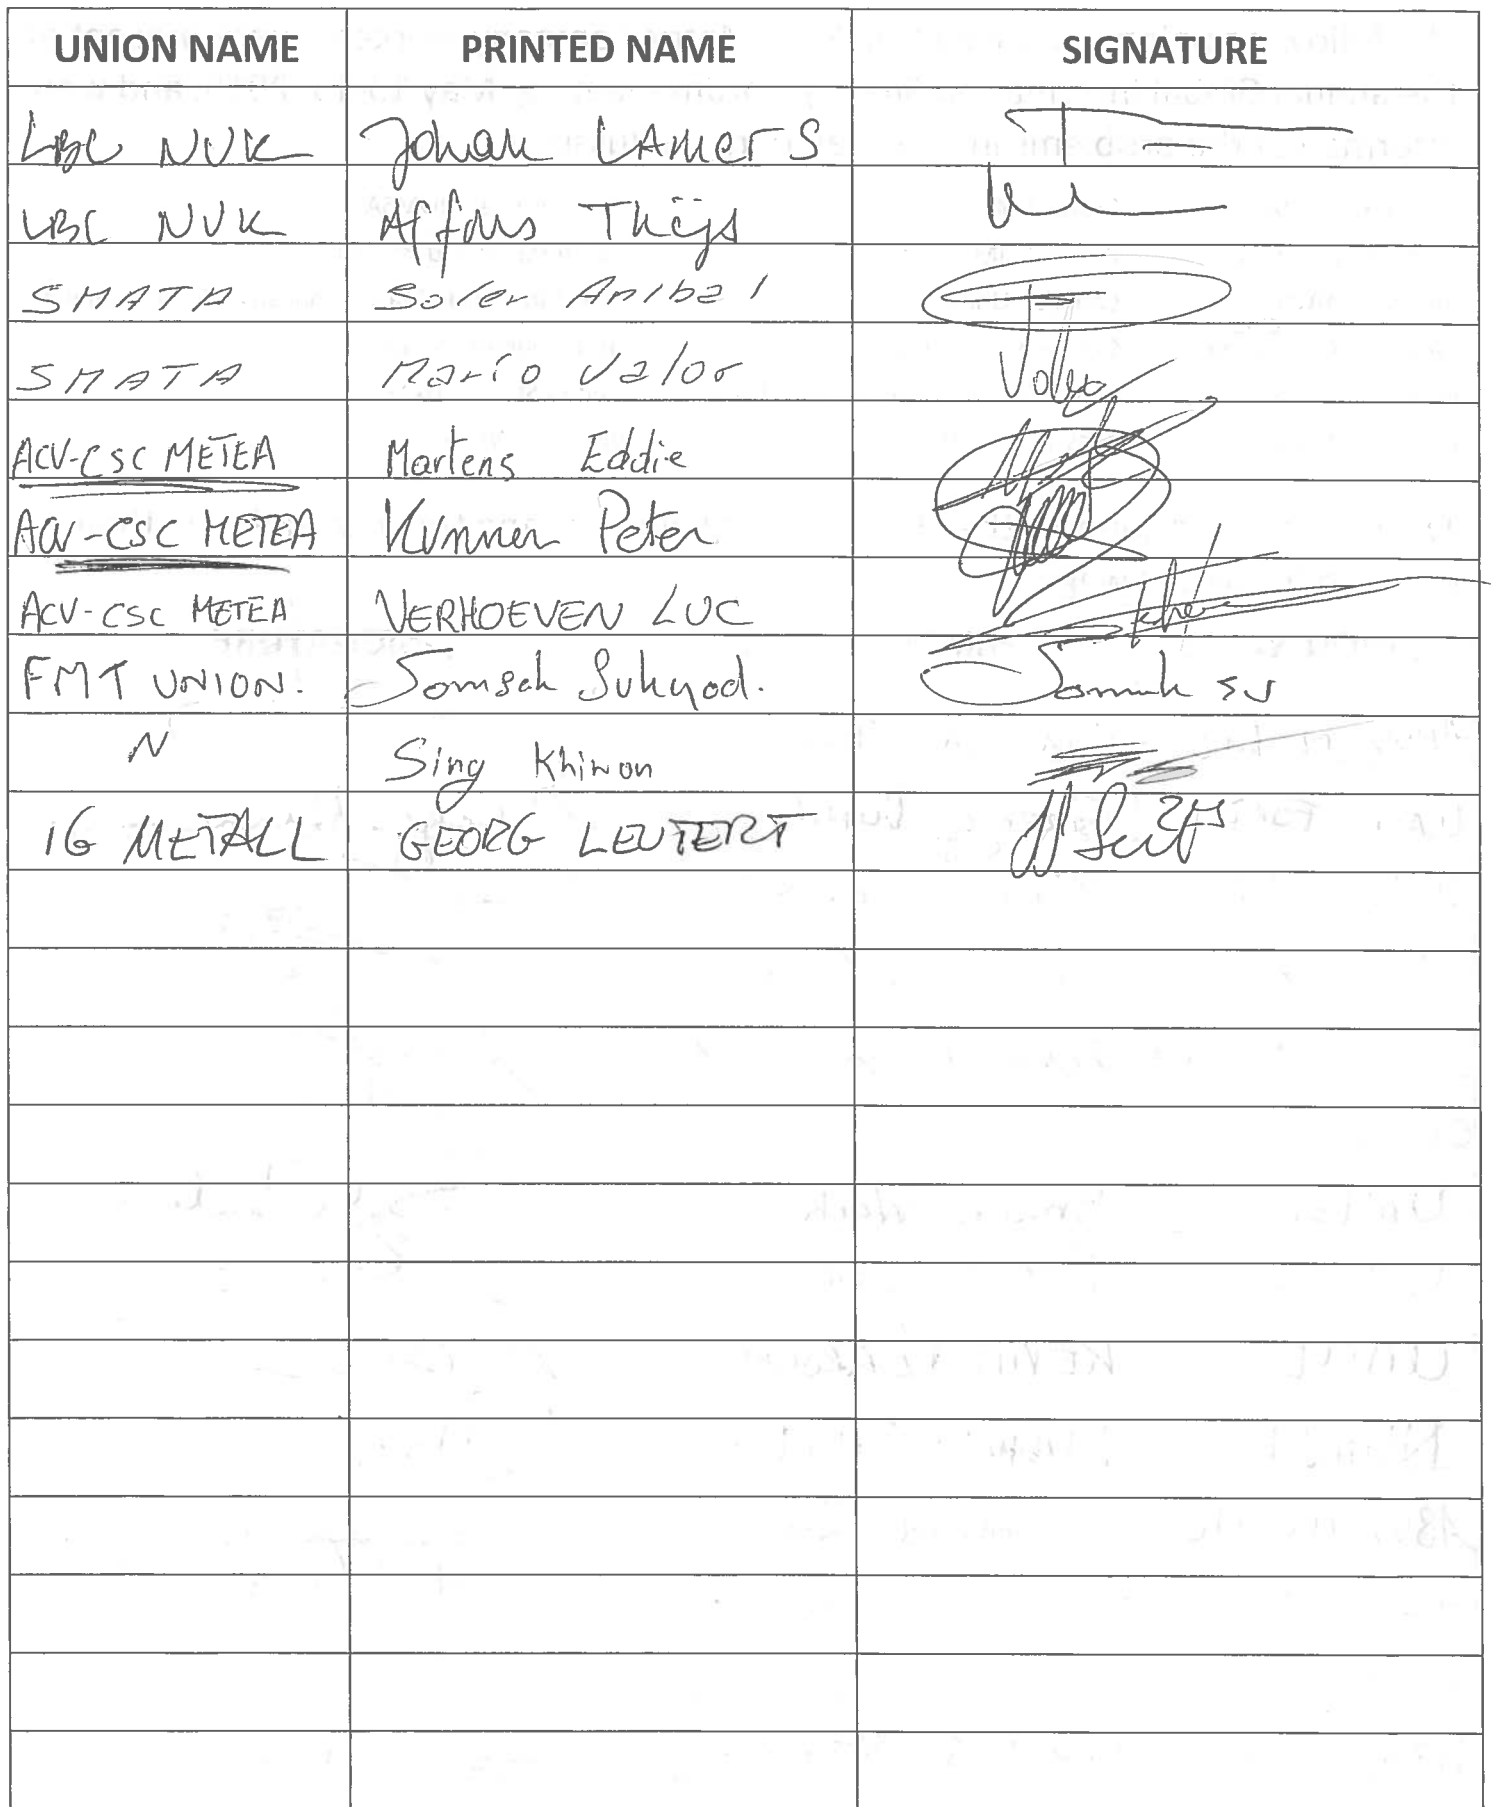 UNION NAME PRINTED NAME SIGNATURE
LBC NVK Johan LAMERS
LBC NVK Alfons Thijs
SMATA Soler Anibal
SMATA Mario Valor
ACV-CSC METEA Martens Eddie
ACV-CSC METEA Kunnen Peter
ACV-CSC METEA VERHOEVEN LUC
FMT UNION. Somsak Sukyod.
N Sing Khiwon
IG METALL GEORG LEUTERT